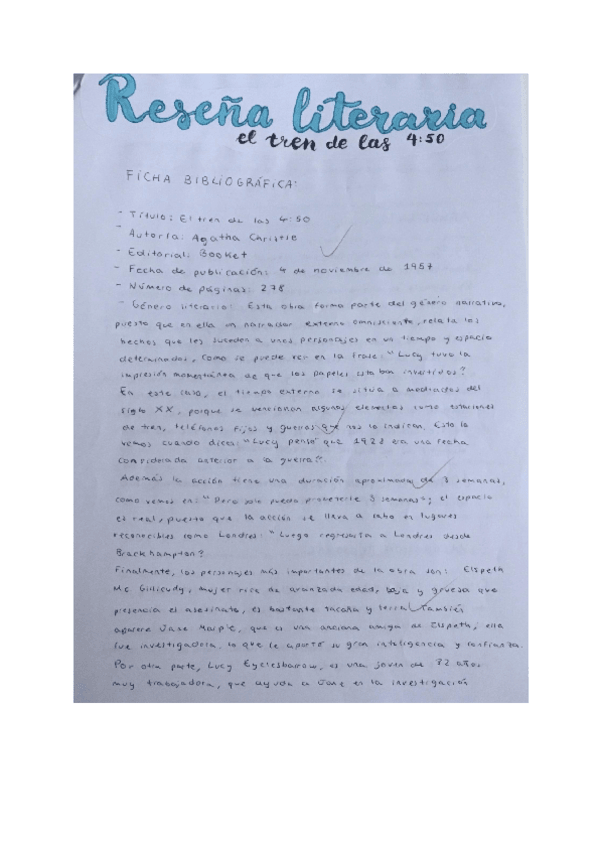 Reseña literaria
el tren de las 4:50
FICHA BIBLIOGRÁFICA:
- Título: El tren de las 4:50
- Autor/a: Agatha Christie
- Editorial: Booket
- Fecha de publicación: 4 de noviembre de 1957
- Número de páginas: 278
- Género literario: Esta obra forma parte del género narrativo,
puesto que en ella un narrador externo omnisciente, relata los
hechos que les suceden a unos personajes en un tiempo y espacio
determinados, como se puede ver en la frase: "Lucy tuvo la
impresión momentánea de que los papeles estaban invertidos".
En este caso, el tiempo externo se situa a mediados del
siglo XX, porque se mencionan algunos elementos como estaciones
de tren, teléfonos fijos y guerras que nos lo indican. Esto lo
vemos cuando dice: "Lucy pensó que 1928 era una fecha
considerada anterior a la guerra".
Además la acción tiene una duración aproximada de 3 semanas,
como vemos en: "Pero solo puedo prometerle 3 semanas", el espacio
es real, puesto que la acción se lleva a cabo en lugares
reconocibles como Londres: "Luego regresaría a Londres desde
Brackhampton".
Finalmente, los personajes más importantes de la obra son: Elspeta
Mc Gillicudy, mujer rica de avanzada edad, baja y gruesa que
presencia el asesinato, es bastante tacaña y También
aparece Jane Marple, que es una anciana amiga de Elspeth, ella
fue investigadora, lo que le aportó su gran inteligencia y confianza.
Por otra parte, Lucy Eyelesbarrow, es una joven de 32 años
muy trabajadora, que ayuda a Jane en la investigación